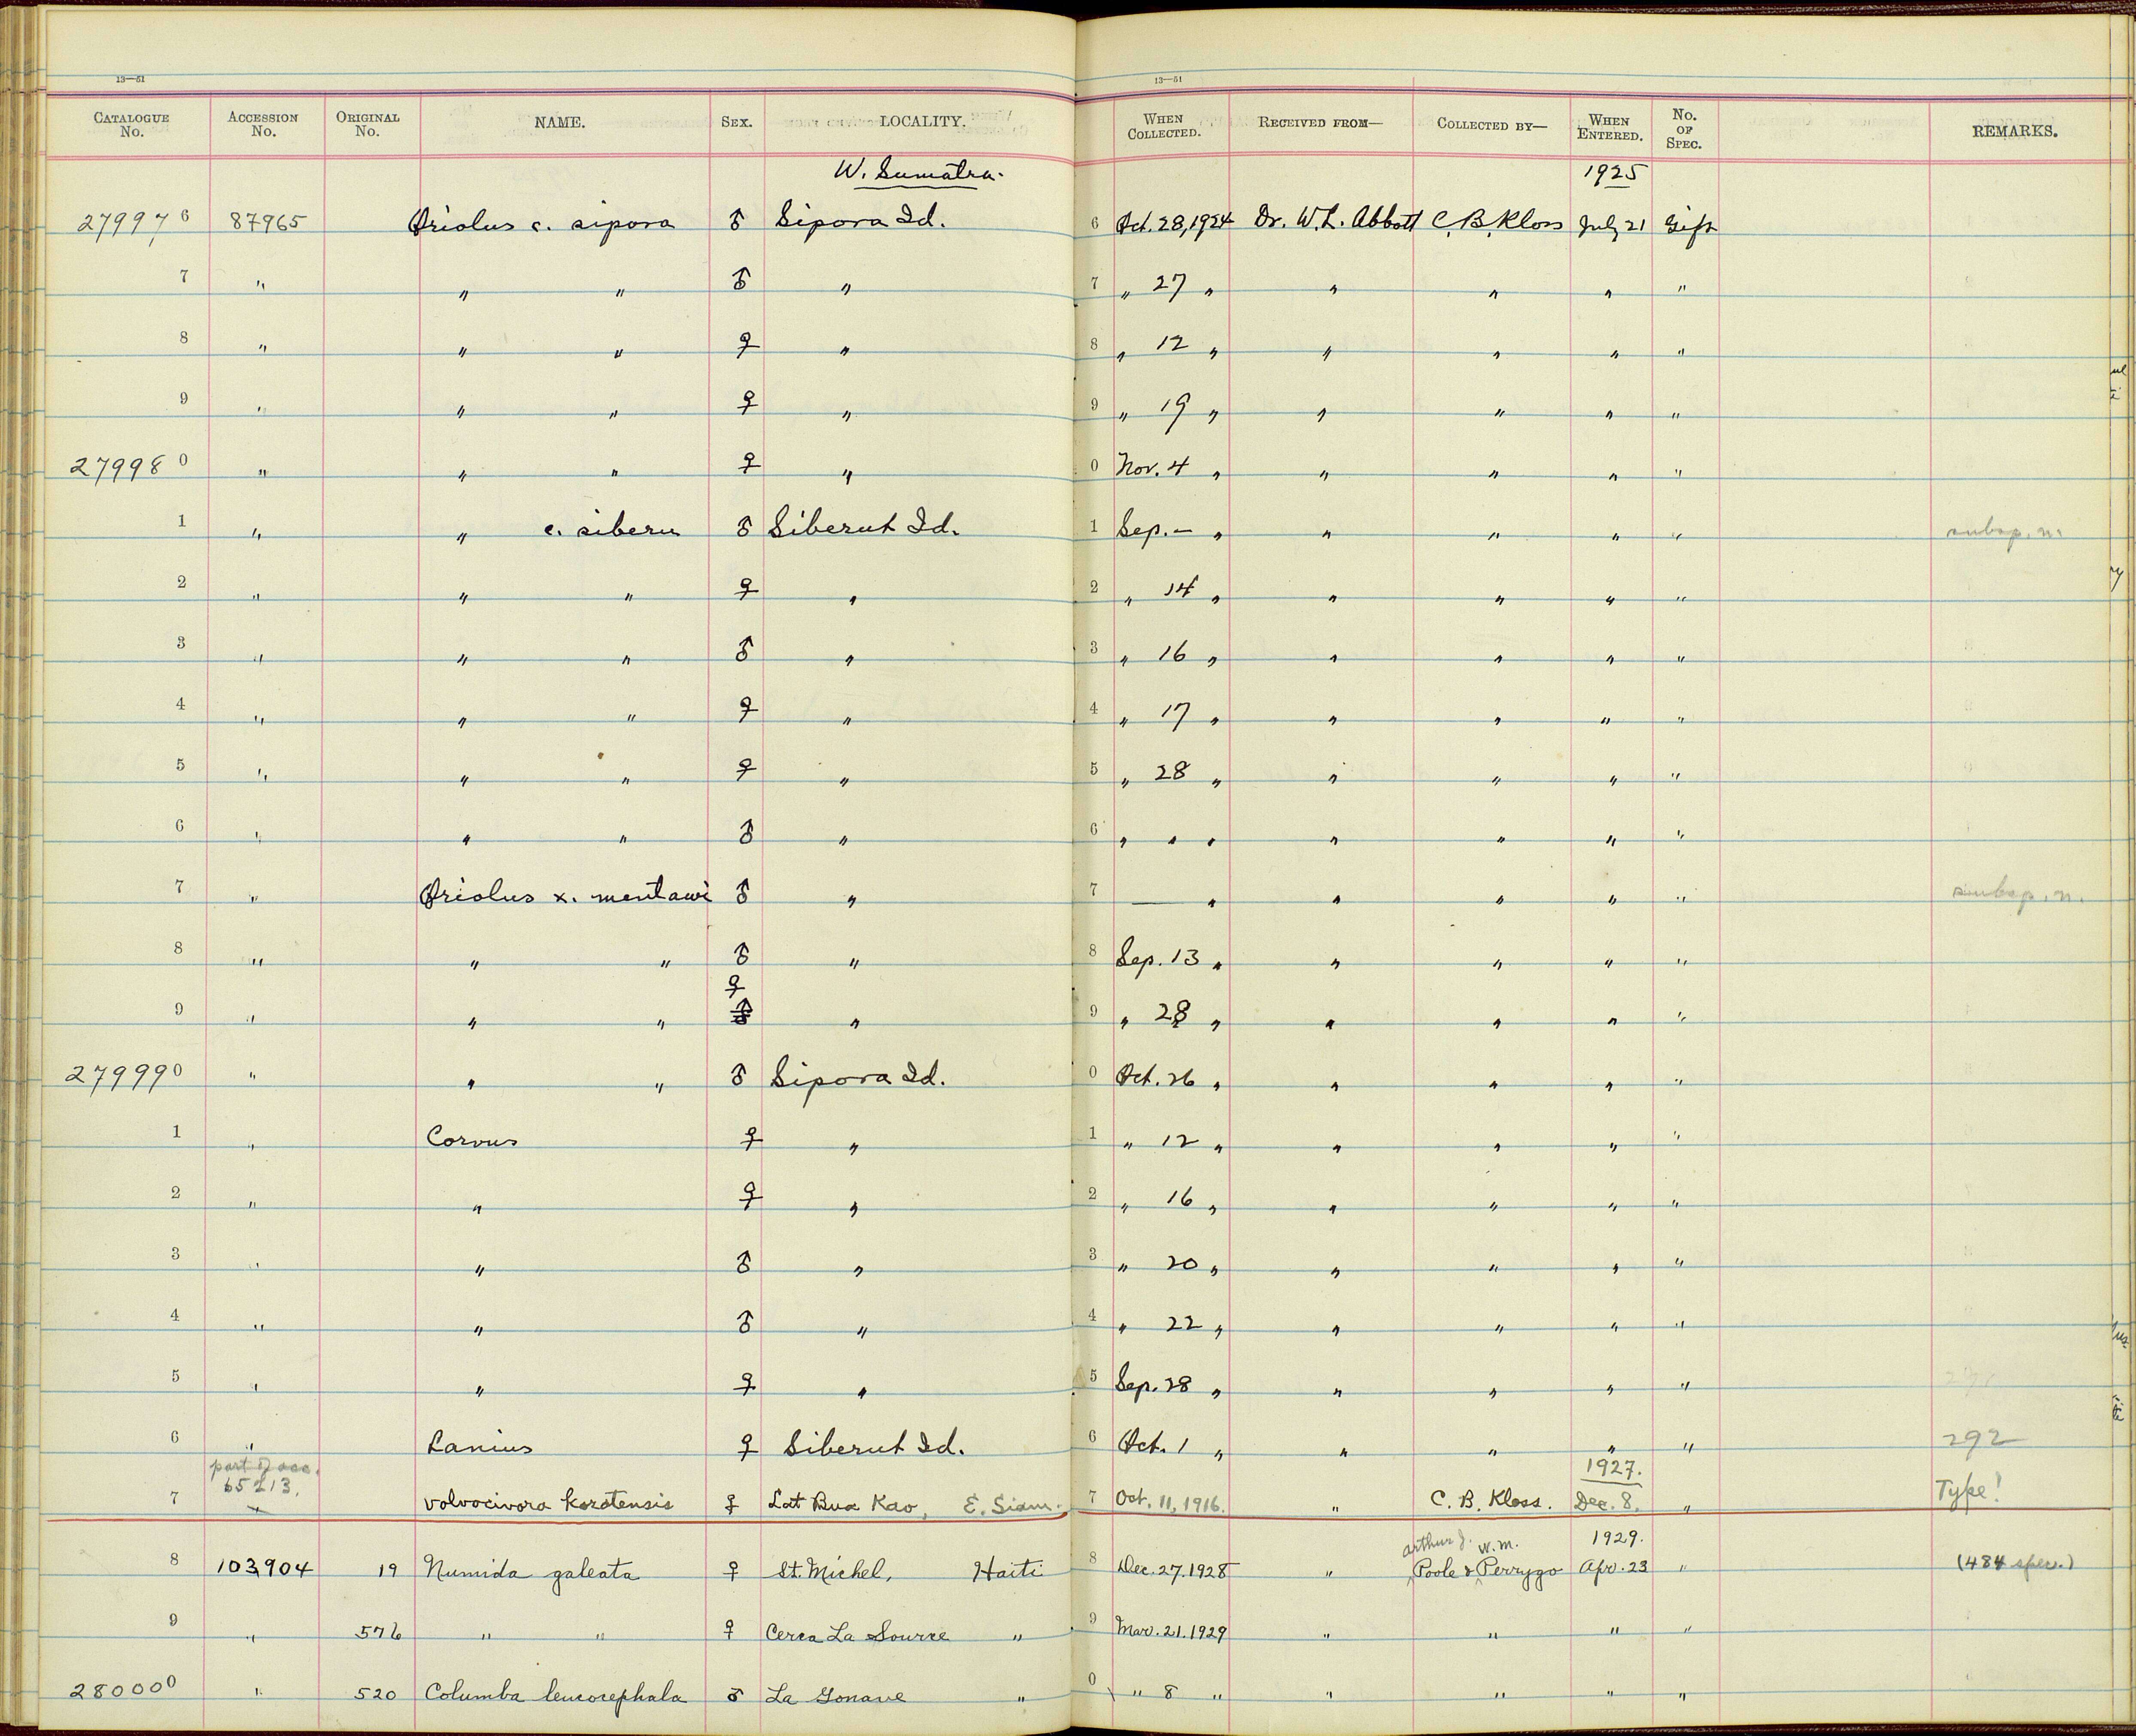 13—51 13—51
CATALOGUE No. ACCESSION No. ORIGINAL No. NAME. SEX. LOCALITY. WHEN COLLECTED. RECEIVED FROM— COLLECTED BY— WHEN ENTERED. No. OF SPEC. REMARKS.
W. Sumatra. 1925
279976 87965 Oriolus c. sipora ♂ Sipora Id. 6 Oct. 28, 1924 Dr. W. L. Abbott C. B. Kloss July 21 Gift
7 " " " ♂ " 7 " 27 " " " " "
8 " " " ♀ " 8 " 12 " " " " "
9 " " " ♀ " 9 " 19 " " " " "
279980 " " " ♀ " 0 Nov. 4 " " " " "
1 " " c. siberu ♂ Siberut Id. 1 Sep. – " " " " " subsp. n.
2 " " " ♀ " 2 " 14 " " " " "
3 " " " ♂ " 3 " 16 " " " " "
4 " " " ♀ " 4 " 17 " " " " "
5 " " " ♀ " 5 " 28 " " " " "
6 " " " ♂ " 6 " " " " " " "
7 " Oriolus x. mentawi ♂ " 7 — " " " " " subsp. n.
8 " " " ♂ " 8 Sep. 13 " " " " "
♀
9 " " " ♂ " 9 " 28 " " " " "
279990 " " " ♂ Sipora Id. 0 Oct. 26 " " " " "
1 " Corvus ♀ " 1 " 12 " " " " "
2 " " ♀ " 2 " 16 " " " " "
3 " " ♂ " 3 " 20 " " " " "
4 " " ♂ " 4 " 22 " " " " "
5 " " ♀ " 5 Sep. 28 " " " " "
6 " Lanius ♀ Siberut Id. 6 Oct. 1 " " " " " 292
part of acc. 1927.
65213.
7 " Volvocivora koratensis ♀ Lat Bua Kao, E. Siam. 7 Oct. 11, 1916. " C. B. Kloss. Dec. 8. " Type!
Arthur J. W. M. 1929.
8 103904 19 Numida galeata ♀ St. Michel, Haiti 8 Dec. 27. 1928 " Poole & Perrygo Apr. 23 " (484 spec.)
9 " 576 " " ♀ Cerca La Source " 9 Mar. 21. 1929 " " " "
280000 " 520 Columba leucocephala ♂ La Gonave " 0 " 8 " " " " "